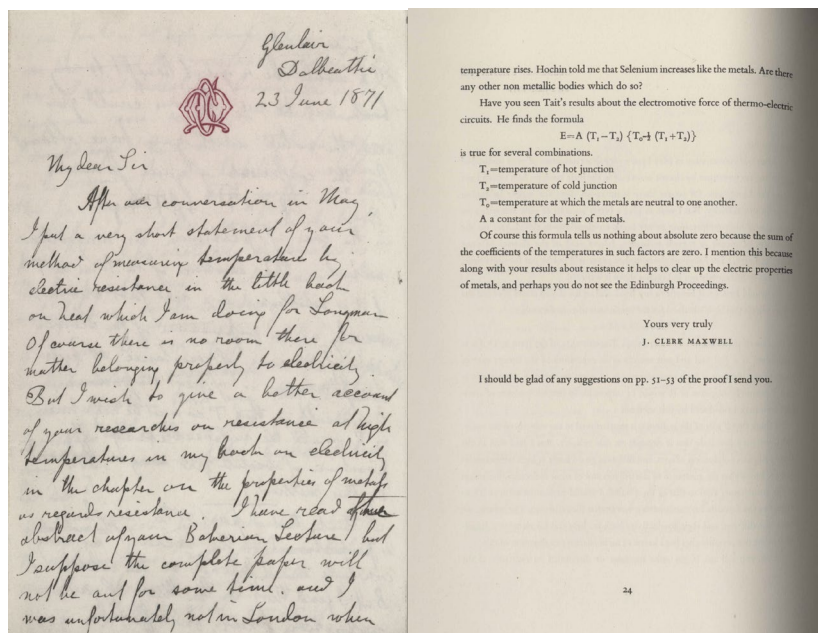 Glenlair
Dalbeattie
23 June 1871
My dear Sir
After our conversation in May,
I put a very short statement of your
method of measuring temperature by
electric resistance in the little book
on heat which I am doing for Longman
Of course there is no room there for
matter belonging properly to electricity.
But I wish to give a better account
of your researches on resistance at high
temperatures in my book on electricity
in the chapter on the properties of metals
as regards resistance. I have read
abstract of your Bakerian Lecture but
I suppose the complete paper will
not be out for some time. and I
was unfortunately not in London when
temperature rises. Hochin told me that Selenium increases like the metals. Are there
any other non metallic bodies which do so?
Have you seen Tait's results about the electromotive force of thermo-electric
circuits. He finds the formula
E=A (T₁−T₂) {T₀-½ (T₁+T₂)}
is true for several combinations.
T₁=temperature of hot junction
T₂=temperature of cold junction
T₀=temperature at which the metals are neutral to one another.
A a constant for the pair of metals.
Of course this formula tells us nothing about absolute zero because the sum of
the coefficients of the temperatures in such factors are zero. I mention this because
along with your results about resistance it helps to clear up the electric properties
of metals, and perhaps you do not see the Edinburgh Proceedings.
Yours very truly
J. CLERK MAXWELL
I should be glad of any suggestions on pp. 51–53 of the proof I send you.
24